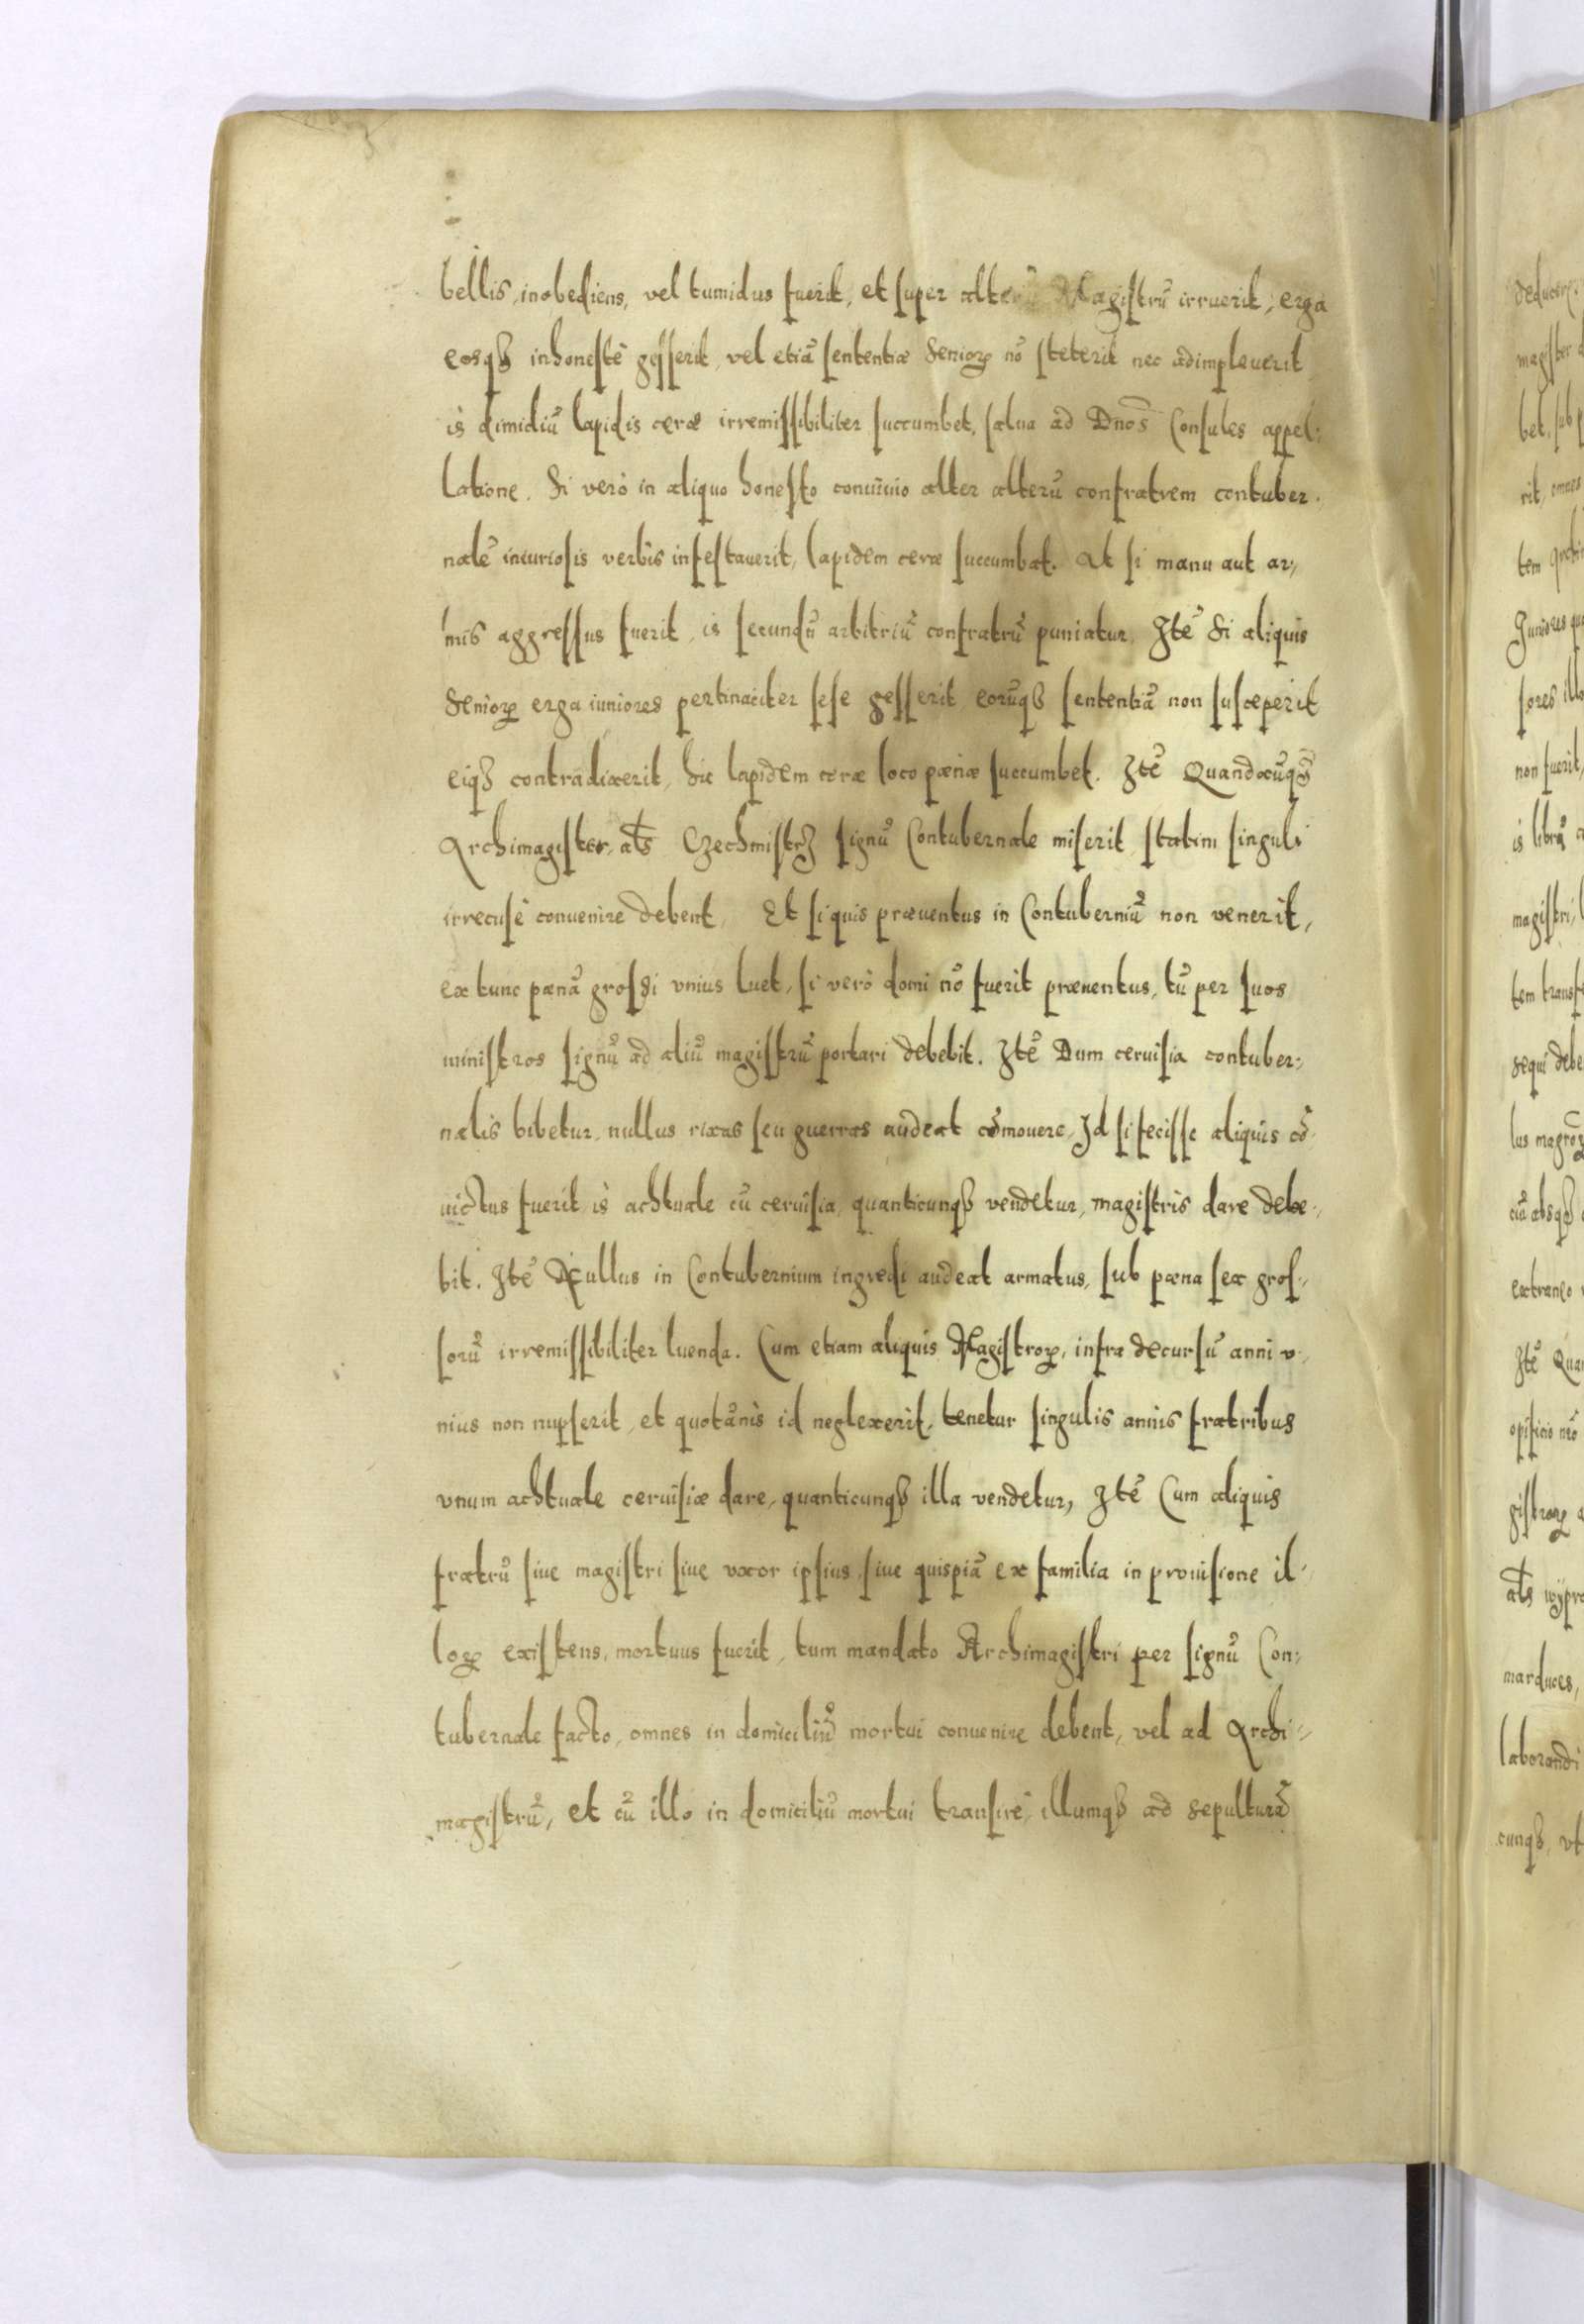 bellis, inobediens, vel tumidus fuerit, et super alterũ Magistrũ irruerit, erga
eosqꝫ inhonestè gesserit, vel etiã sententiæ Seniorꝝ nõ steterit nec adimpleverit
is dimidiũ lapidis ceræ irremissibiliter succumbet, salva ad Dnõs Consules appel:
latione. Si verò in aliquo honesto conuiuio alter alterũ confratrem contuber.
nalẽ iniuriosis verbis infestauerit, lapidem ceræ succumbat. At si manu aut ar,,
mis aggressus fuerit, is secundũ arbitriũ confratrũ puniatur. Itẽ Si aliquis
Seniorꝝ erga iuniores pertinaciter sese gesserit, eorũqꝫ sententiã non susceperit
eiqꝫ contradixerit, hic lapidem ceræ loco pænæ succumbet. Itẽ Quandocũqꝫ
Archimagister, als Czechmistrz signũ Contubernale miserit, statim singuli
irrecusè conuenire debent. Et si quis præuentus in Contuberniũ non venerit,
ex tunc pænã grossi vnius luet, si verò domi nõ fuerit præuentus, tũ per suos
ministros signũ ad aliũ magistrũ portari debebit. Itẽ Dum ceruisia contuber:,
nalis bibetur, nullus rixas seu guerras audeat cõmouere, Id si fecisse aliquis cõ,
uictus fuerit, is achtuale cũ ceruisia, quanticunqꝫ vendetur, magistris dare debe,,
bit. Itẽ Nullus in Contubernium ingredi audeat armatus, sub pæna sex gros,,
sorũ irremissibiliter luenda. Cum etiam aliquis Magistrorꝝ, infra decursũ anni v,,
nius non nupserit, et quotãnis id neglexerit, tenetur singulis annis fratribus
vnum achtuale ceruisiæ dare, quanticunqꝫ illa vendetur, Itẽ Cum aliquis
fratrũ siue magistri siue vxor ipsius, siue quispiã ex familia in prouisione il,,
lorꝝ existens, mortuus fuerit, tum mandato Archimagistri per signũ Con:
tubernale facto, omnes in domiciliũ mortui conuenire debent, vel ad Archi,,
magistrũ, et cũ illo in domiciliũ mortui transire, illumqꝫ ad sepulturã
deducere.
magister
bet, sub
rit, omnes
tem
Iuniores
sores
non fuerit,
is librã
magistri,
tem
sequi debe
lus
ciã absqꝫ
extraneo
Itẽ
opificio
gistrorꝝ
als
laborandi
cunqꝫ, vt